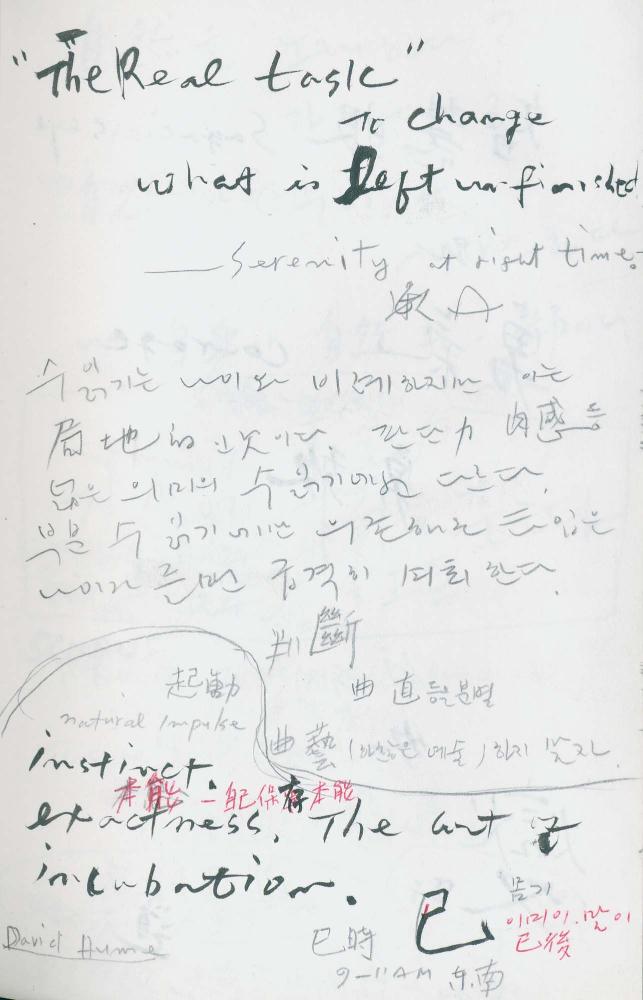 "The Real task"
To change
what is Left un-finished
— Serenity at right time.
수 읽기는 나이와 비례하지만 이는
局地的인 것이다. 판단力 肉感 등
넓은 의미의 수 읽기에선 다르다.
부분 수 읽기에만 의존하는 타입은
나이가 들면 급격히 퇴화 한다.
判斷
起動
曲直 등을 분별
natural impulse
曲藝 ( 예술) 하지 말자.
instinct.
本能 — 自己保存本能
exactness, The art of
incubation.
巳
이미 이. 말 이
已後
David Hume
巳時
9-11 AM 东南